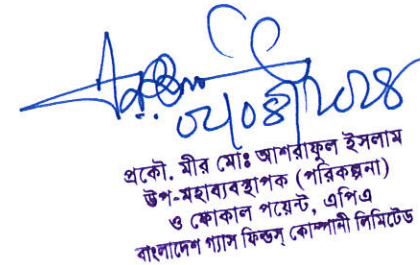 ০২/০৪/২০২৪
প্রকৌ. মীর মোঃ আশরাফুল ইসলাম
উপ-মহাব্যবস্থাপক (পরিকল্পনা)
ও ফোকাল পয়েন্ট, এপিএ
বাংলাদেশ গ্যাস ফিল্ডস্ কোম্পানী লিমিটেড